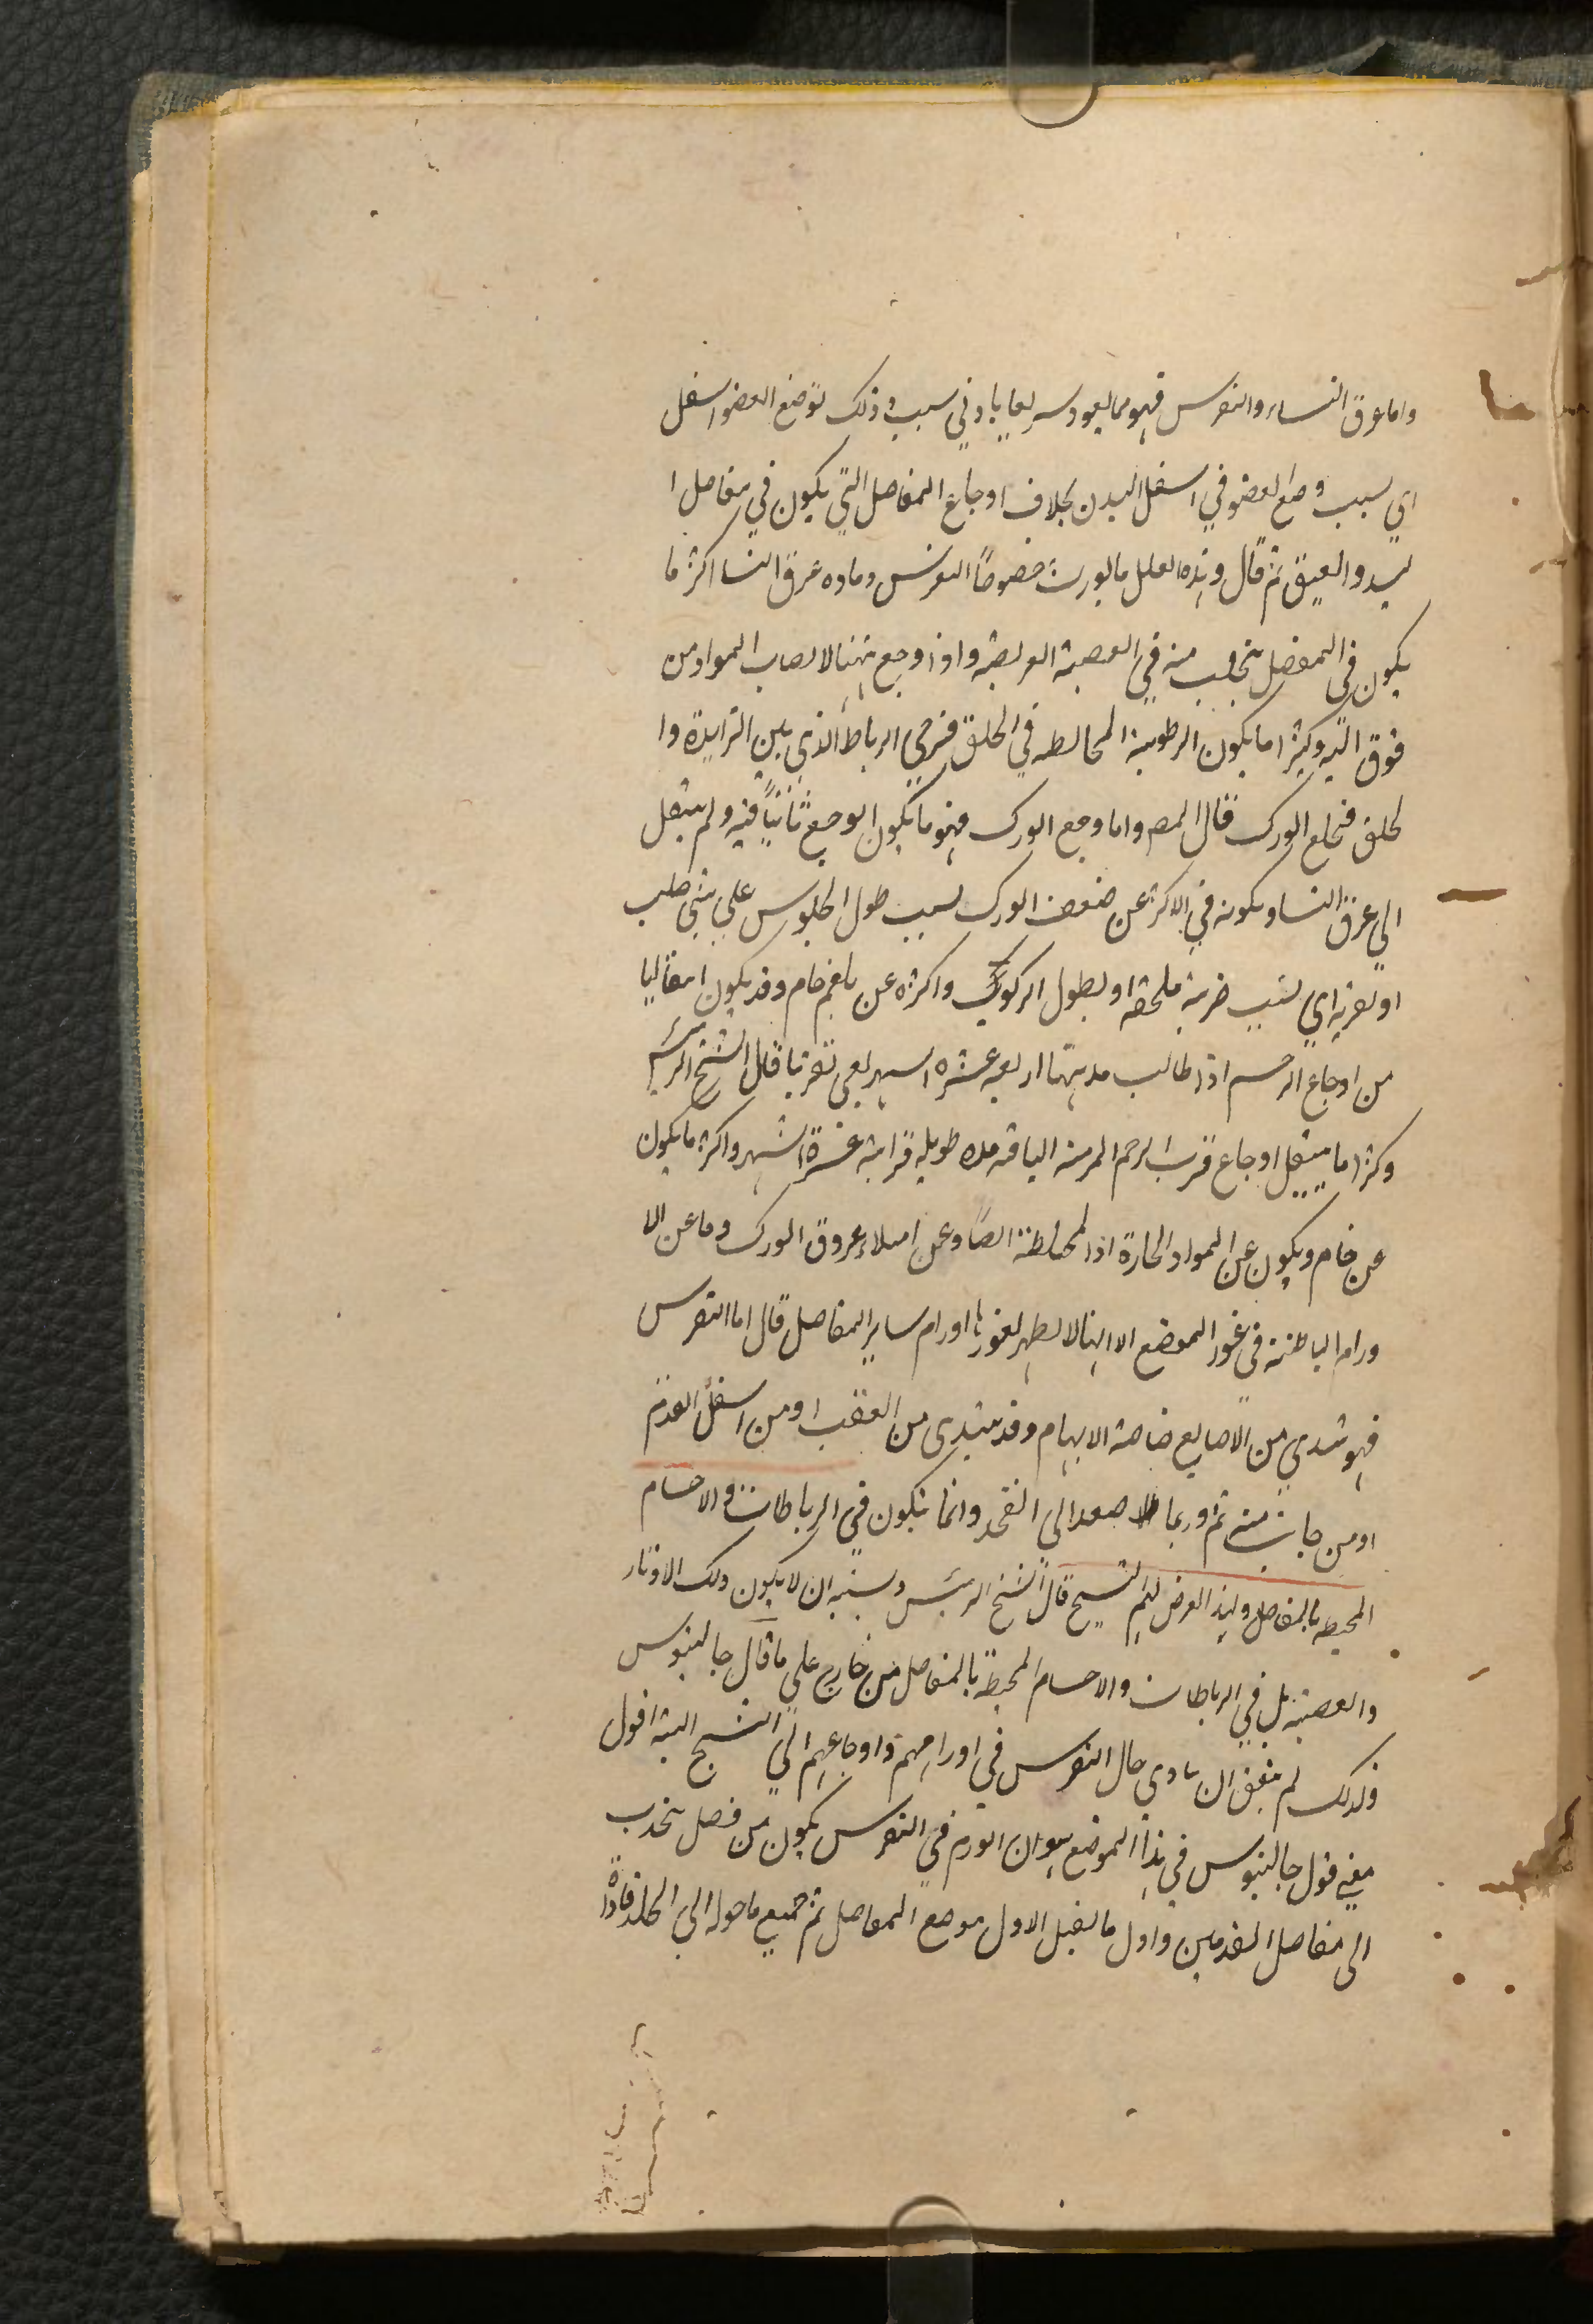 واما عرق النساء والنقرس فهو مما يعود سريعا بادني سبب وذلك لوضع العضو اسفل
اي سبب وضع العضو في اسفل البدن بخلاف اوجاع المفاصل التي يكون في مفاصل ا
ليد والعنق ثم قال وهذه العلل مما يورث خصوصًا النقرس وماده عرق النسا اكثر ما
يكون في المفصل ينجلب منه في العصبة العريضة واذا وجع تهيا لانصاب المواد من
فوق اليه وكثيرا ما يكون الرطوبة المخالطه في الحلق فترخي الرباط الذي بين الزايدة وا
لحلق فنخلع الورك قال المصـ واما وجع الورك فهو ما يكون الوجع ثابتًا فيه ولم ينتقل
الي عرق النسا ويكونه في الاكثر عن ضعف الورك لسبب طول الجلوس علي شي صلب
او لضربه اي لسبب ضربة ملحقه او بطول الركوب واكثره عن بلغم خام وقد يكون انتقاليا
من اوجاع الرحم اذا طالب مدتها اربعه عشره اشهر يعني تقريبا قال الشيخ الرئيس
وكثيرا ما ينتقل اوجاع قرب الرحم المزمنه الباقيه مده طويله قرابة عشرة اشهر واكثر ما يكون
عن خام ويكون عن المواد الحارة اذا المختلطة ايضًا وعن امتلاء عروق الورك وما عن الا
ورام الباطنة في غور الموضع الا انها لا يظهر لغورها اورام ساير المفاصل قال اما النقرس
فهو يبتدي من الاصابع خاصة الابهام وقد يبتدي من العقب او من اسفل القدم
او من جانب منه ثم وربما صعد الي الفخذ وانما يتكون في الرباطات والاجسام
المحيطه بالمفاصل ولهذا العرض لهم التشنج قال الشيخ الرئيس وينبه ان لا يكون ذلك الاوتار
والعصبة بل في الرباطات والاجسام المحيطة بالمفاصل من خارج علي ما قال جالينوس
فلذلك لم يتفق ان يتادي حال النقرس في اورامهم واوجاعهم الي التشنج البتة اقول
معني قول جالينوس في هذا الموضع هو ان الورم في النقرس يكون من فضل ينحدب
الي مفاصل القدمين واول ما يقبل الاول موضع المفاصل ثم جميع ما حوله الي الجلد فاذا